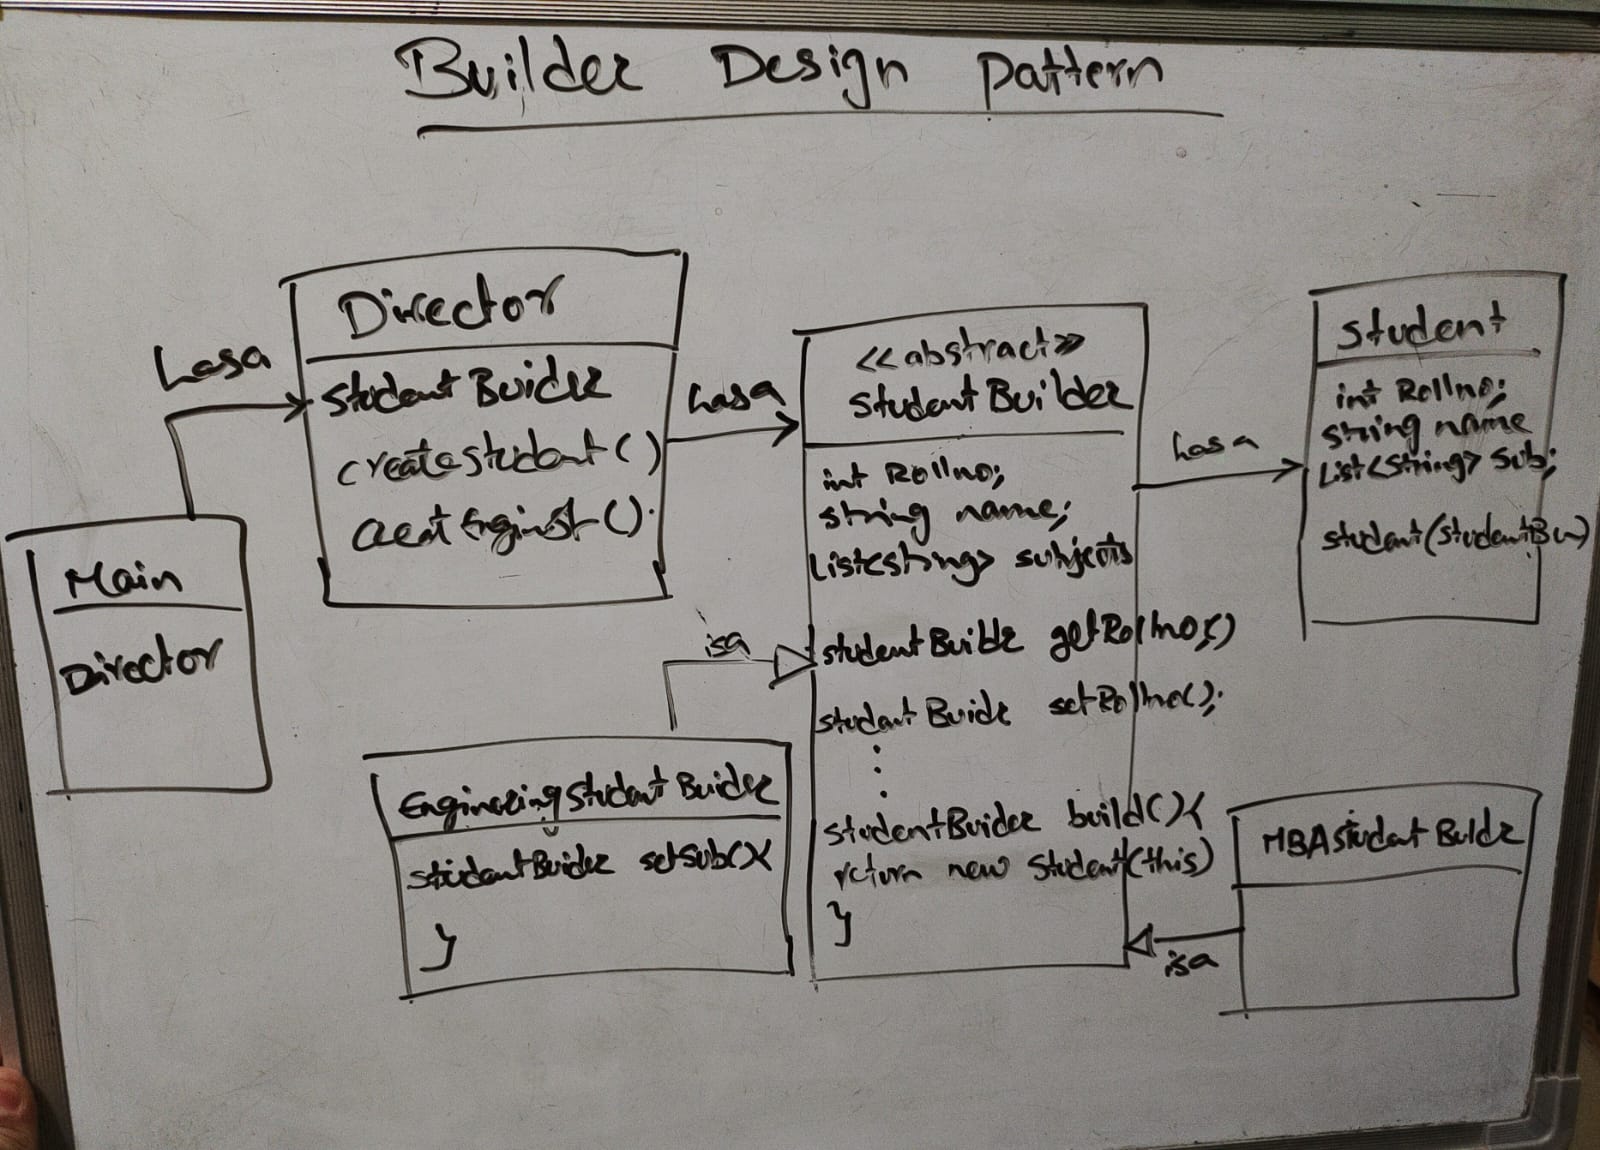 Builder Design pattern
hasa
Director
StudentBuider
createstudent()
hasa
<<abstract>>
StudentBuilder
int Rollno;
string name;
List<string> subjects
studentBuilde getRollno()
studentBuide setRollno();
studentBuider build(){
return new Student(this)
}
hasa
Student
int Rollno;
string name
List<String> Sub;
student(StudentBu)
Main
Director
isa
EngineeringStudentBuider
studentBuider setSub(){
}
MBAStudentBuldr
isa